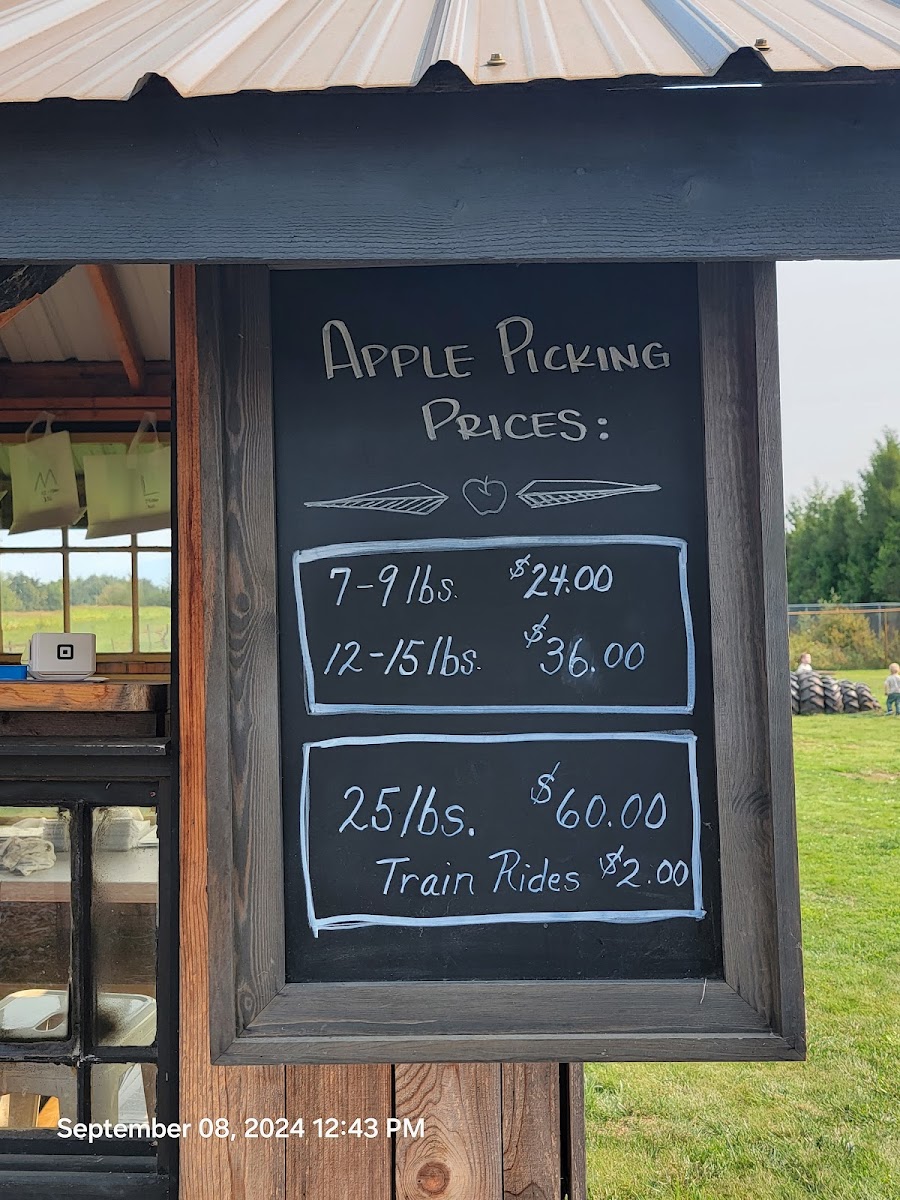 APPLE PICKING
PRICES:
7-9 lbs. $24.00
12-15 lbs. $36.00
25 lbs. $60.00
Train Rides $2.00
September 08, 2024 12:43 PM